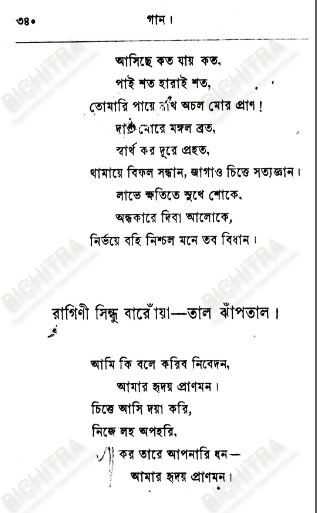 ৩৪০
গান।
আসিছে কত যায় কত,
পাই শত হারাই শত,
তোমারি পায়ে রাখ অচল মোর প্রাণ!
দাও মোরে মঙ্গল ব্রত,
স্বার্থ কর দূরে প্রহত,
থামায়ে বিফল সন্ধান, জাগাও চিত্তে সত্যজ্ঞান।
লাভে ক্ষতিতে সুখে শোকে,
অন্ধকারে দিবা আলোকে,
নির্ভয়ে বহি নিশ্চল মনে তব বিধান।
রাগিণী সিন্ধু বারোঁয়া—তাল ঝাঁপতাল।
আমি কি বলে করিব নিবেদন,
আমার হৃদয় প্রাণমন।
চিত্তে আসি দয়া করি,
নিজে লহ অপহরি,
কর তারে আপনারি ধন—
আমার হৃদয় প্রাণমন।
BICHITRA